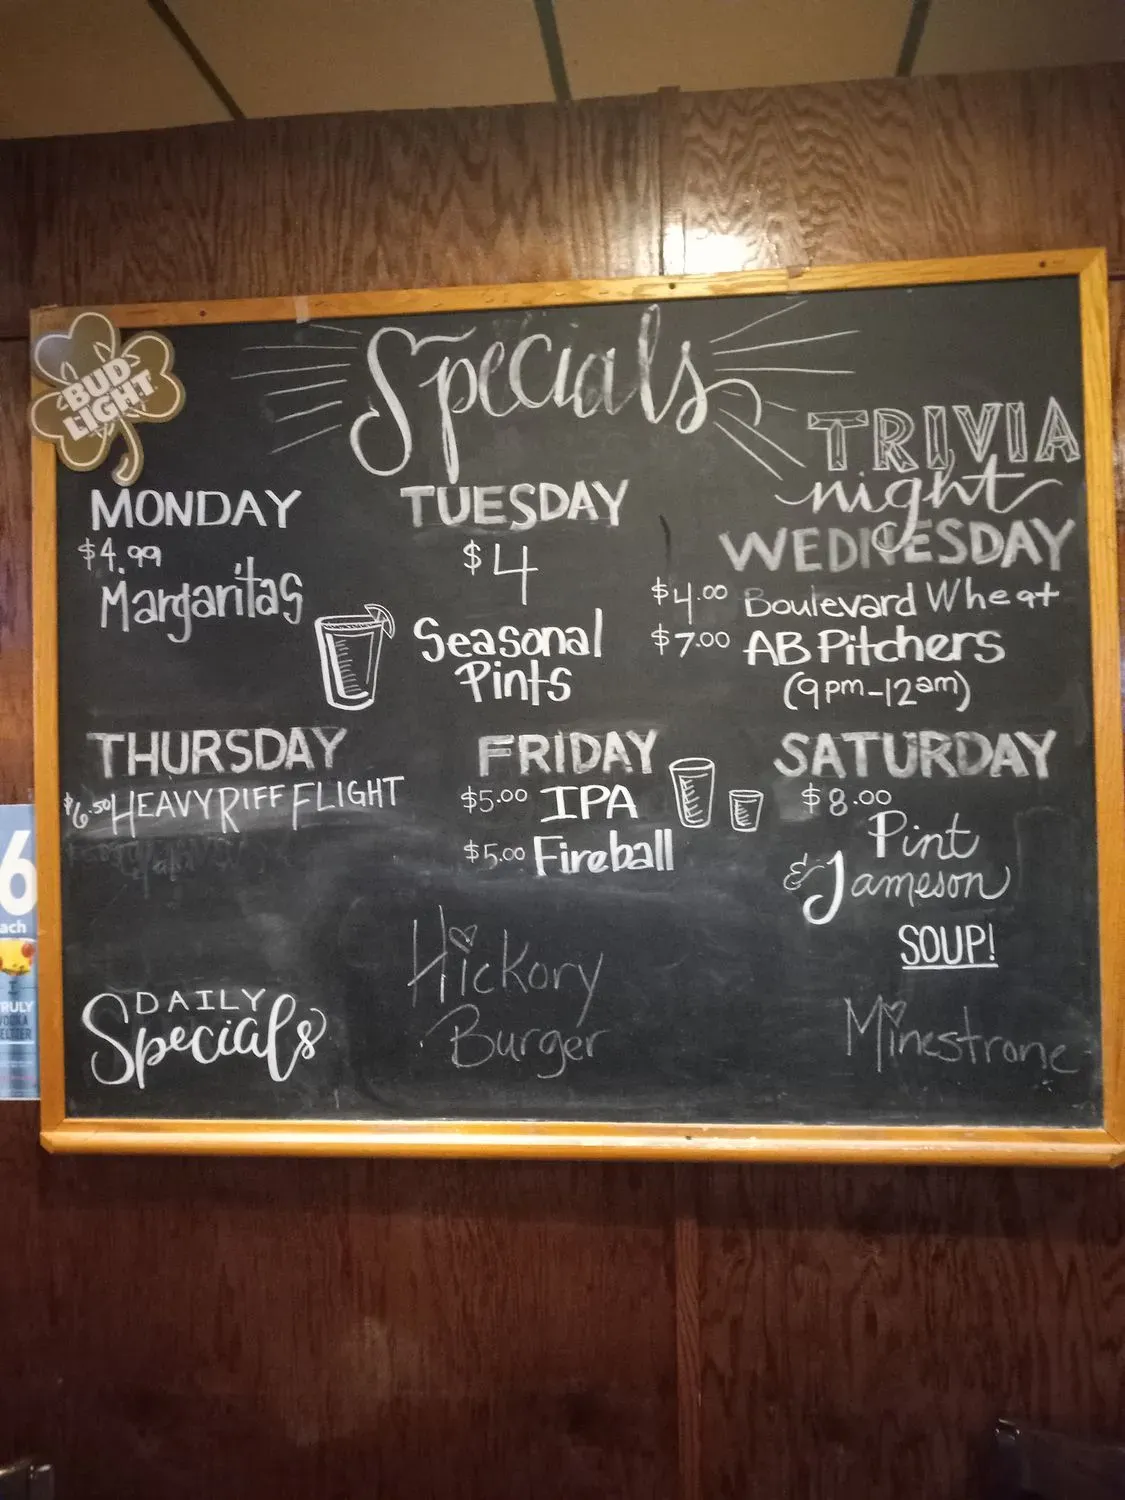 Specials
BUD
LIGHT
TRIVIA
night
MONDAY
$4.99
Margaritas
TUESDAY
$4
Seasonal
Pints
WEDNESDAY
$4.00 Boulevard Wheat
$7.00 AB Pitchers
(9pm-12am)
THURSDAY
$6.50 HEAVY RIFF FLIGHT
FRIDAY
$5.00 IPA
$5.00 Fireball
SATURDAY
$8.00
Pint
& Jameson
SOUP!
Minestrone
DAILY
Specials
Hickory
Burger
6
ach
RULY